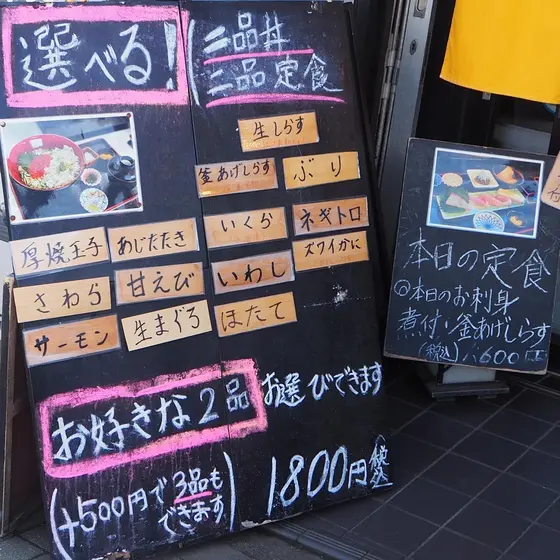 選べる!
二品丼
二品定食
生しらす
釜あげしらす
ぶり
厚焼玉子
あじたたき
いくら
ネギトロ
さわら
甘えび
いわし
ズワイがに
サーモン
生まぐろ
ほたて
お好きな2品
お選びできます
(+500円で3品も
できます)
1800円
税込
本日の定食
◎本日のお刺身
煮付・釜あげしらす
(税込)1600円